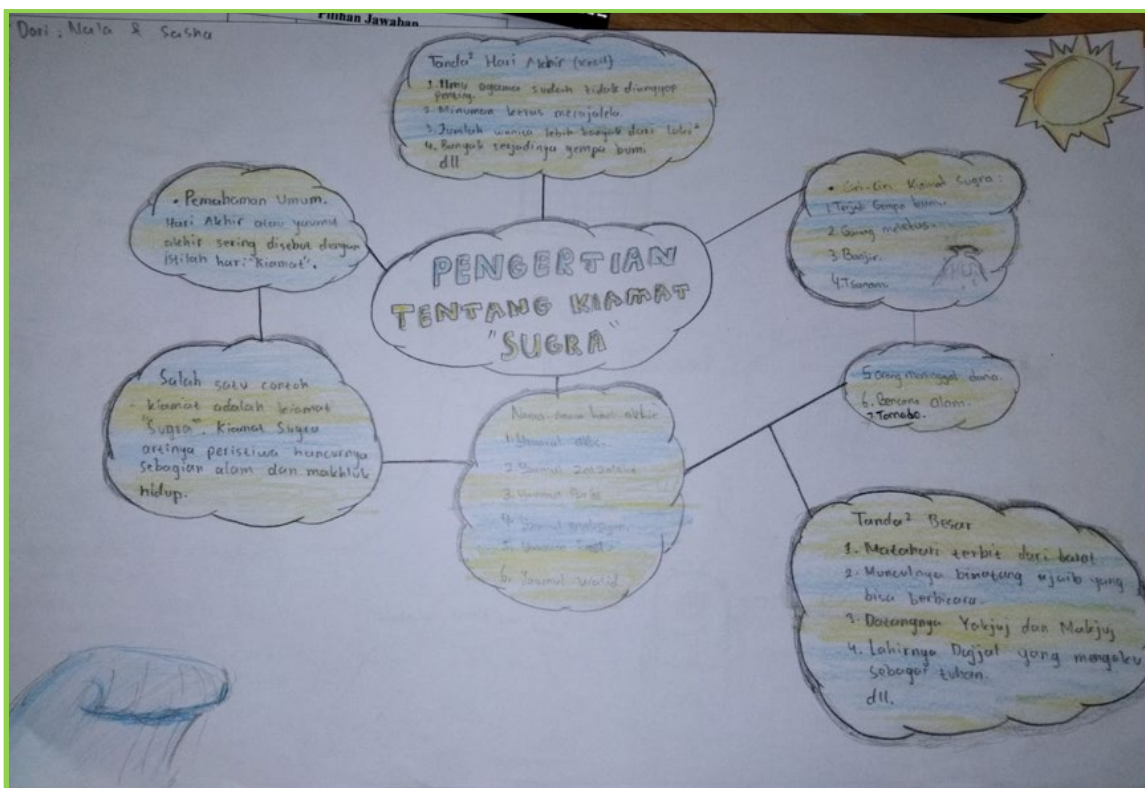 Pilihan Jawaban
Dari : Nala & Sasha
Tanda² Hari Akhir (kecil)
1. Ilmu agama sudah tidak dianggap
penting.
2. Minuman keras merajalela.
3. Jumlah wanita lebih banyak dari laki²
4. Banyak terjadinya gempa bumi
dll
• Pemahaman Umum.
Hari Akhir atau yaumul
akhir sering disebut dengan
istilah hari "Kiamat".
• Ciri-Ciri Kiamat Sugra :
1. Terjadi Gempa bumi.
2. Gunung meletus.
3. Banjir.
4. Tsunami
PENGERTIAN
TENTANG KIAMAT
"SUGRA"
Salah satu contoh
kiamat adalah kiamat
"Sugra". Kiamat Sugra
artinya peristiwa hancurnya
sebagian alam dan makhluk
hidup.
Nama-nama hari akhir
1. Yaumul
2. Yaumul zalzalah
3. Yaumul
4. Yaumul
5. Yaumul
6. Yaumul Walid
5. Orang meninggal dunia.
6. Bencana alam.
7. Tornado.
Tanda² Besar
1. Matahari terbit dari barat
2. Munculnya binatang ajaib yang
bisa berbicara.
3. Datangnya Yakjuj dan Makjuj
4. Lahirnya Dajjal yang mengaku
sebagai tuhan.
dll.